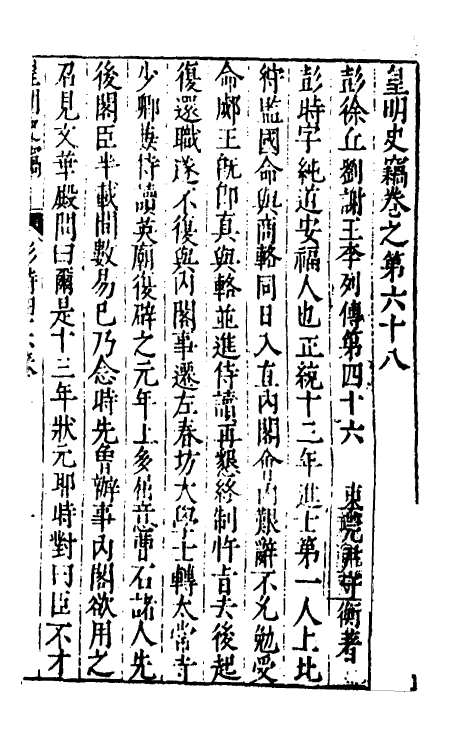 皇明史竊卷之第六十八
彭徐丘劉謝王李列傳第四十六 東莞尹守衡著
彭時字純道安福人也正統十三年進士第一人上北
狩監國命與商輅同日入直內閣會內艱辭不允勉受
命郕王既即真與輅並進侍讀再懇終制忤旨去後起
復還職遂不復與內閣事遷左春坊大學士轉太常寺
少卿兼侍讀英廟復辟之元年上多徇意曹石諸人先
後閣臣半載間數易已乃念時先曾辦事內閣欲用之
召見文華殿問曰爾是十三年狀元耶時對曰臣不才
皇明史竊